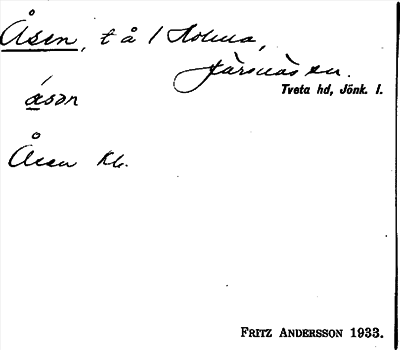 Åsen, t å 1 Holma,
Järsnäs sn.
Tveta hd, Jönk. l.
åsən
Åsen Kb.
FRITZ ANDERSSON 1933.